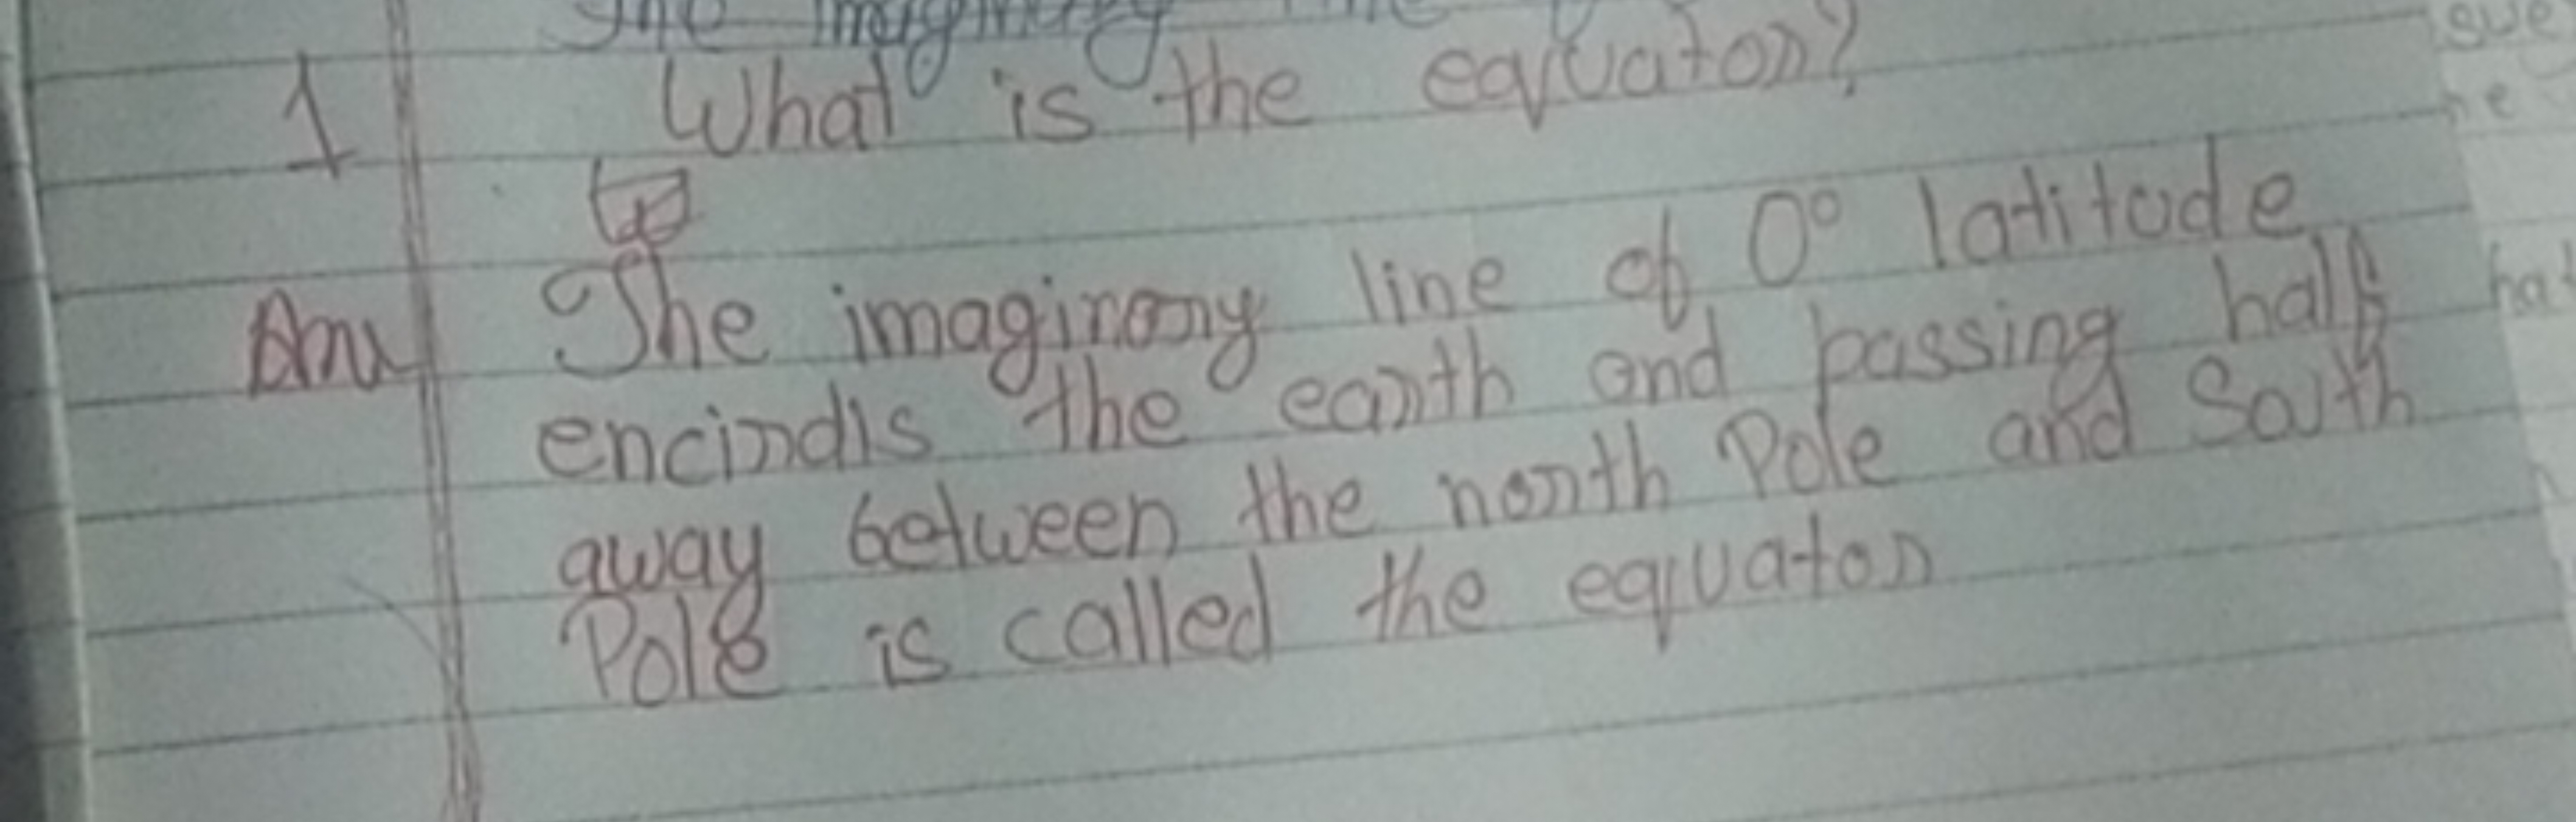 The imaginary line
1 What is the equator?
Ans The imaginary line of 0° latitude
encirdls the earth and passing half
away between the north Pole and South
Pole is called the equator